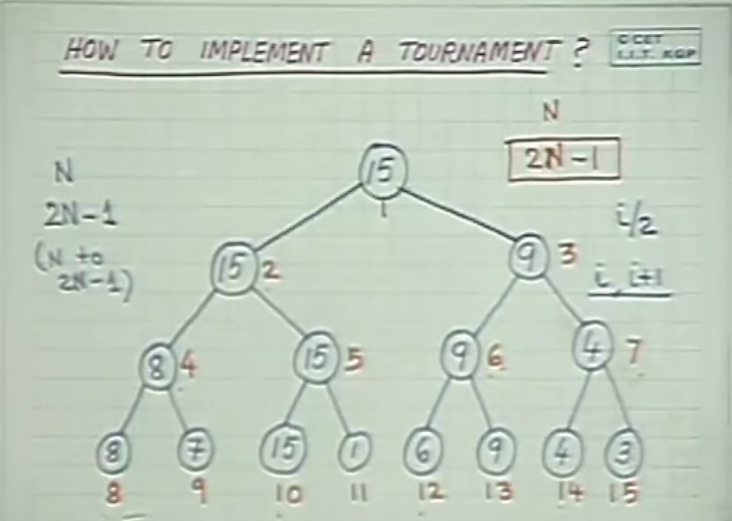 HOW TO IMPLEMENT A TOURNAMENT ?
C CET
I.I.T. KGP
N
2N-1
N
2N-1
(N to
2N-1)
i/2
i, i+1
15
1
15 2
9 3
8 4
15 5
9 6
4 7
8 7 15 1 6 9 4 3
8 9 10 11 12 13 14 15